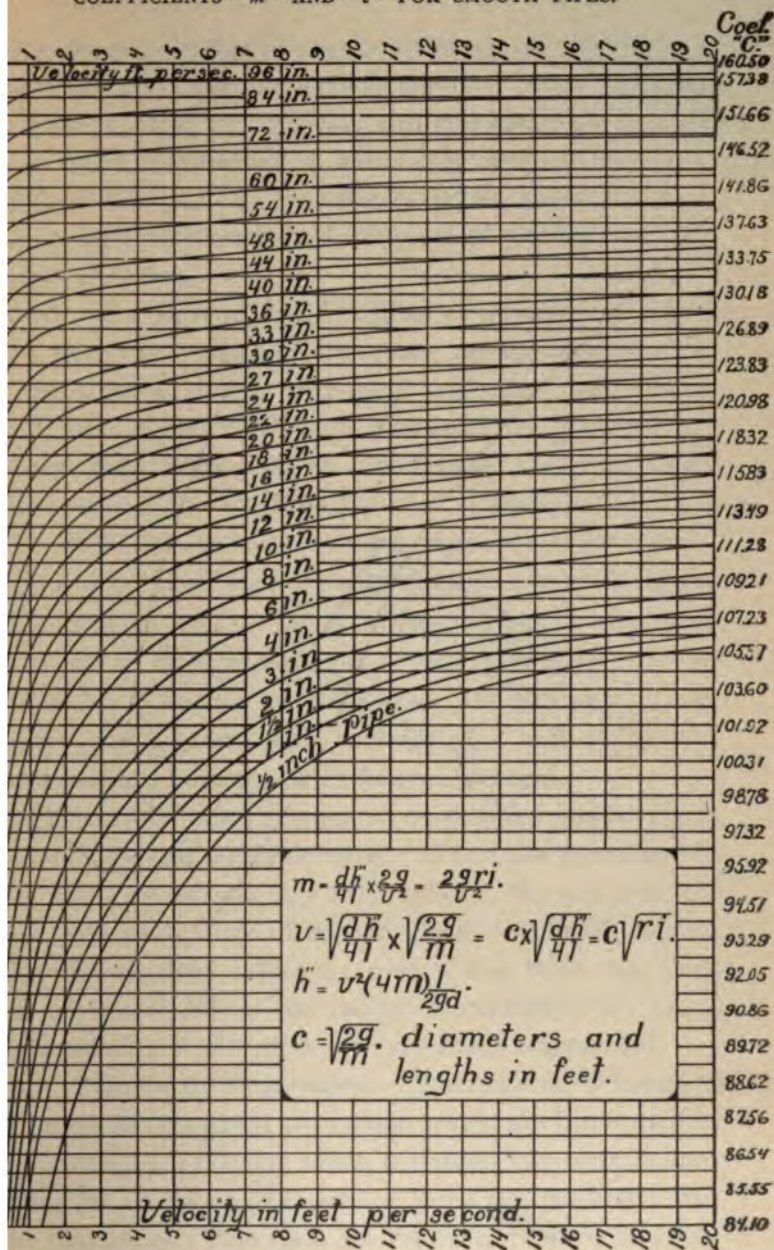 COEFFICIENTS "m" AND "c" FOR SMOOTH PIPES.
Coef.
"C."
1 2 3 4 5 6 7 8 9 10 11 12 13 14 15 16 17 18 19 20
Velocity ft. per sec. 96 in.
84 in.
72 in.
60 in.
54 in.
48 in.
44 in.
40 in.
36 in.
33 in.
30 in.
27 in.
24 in.
22 in.
20 in.
18 in.
16 in.
14 in.
12 in.
10 in.
8 in.
6 in.
4 in.
3 in
2 in.
1½ in
1 in.
½ inch pipe.
160.50
157.38
151.66
146.52
141.86
137.63
133.75
130.18
126.89
123.83
120.98
118.32
115.83
113.49
111.28
109.21
107.23
105.37
103.60
101.92
100.31
98.78
97.32
95.92
94.57
93.29
92.05
90.86
89.72
88.62
87.56
86.54
85.55
84.10
m = dh"/4l × 2g/v² = 2gri/v².
v = √dh"/4l × √2g/m = c × √dh"/4l = c√ri.
h" = v²(4m) l/2gd.
c = √2g/m. diameters and
lengths in feet.
Velocity in feet per second.
1 2 3 4 5 6 7 8 9 10 11 12 13 14 15 16 17 18 19 20